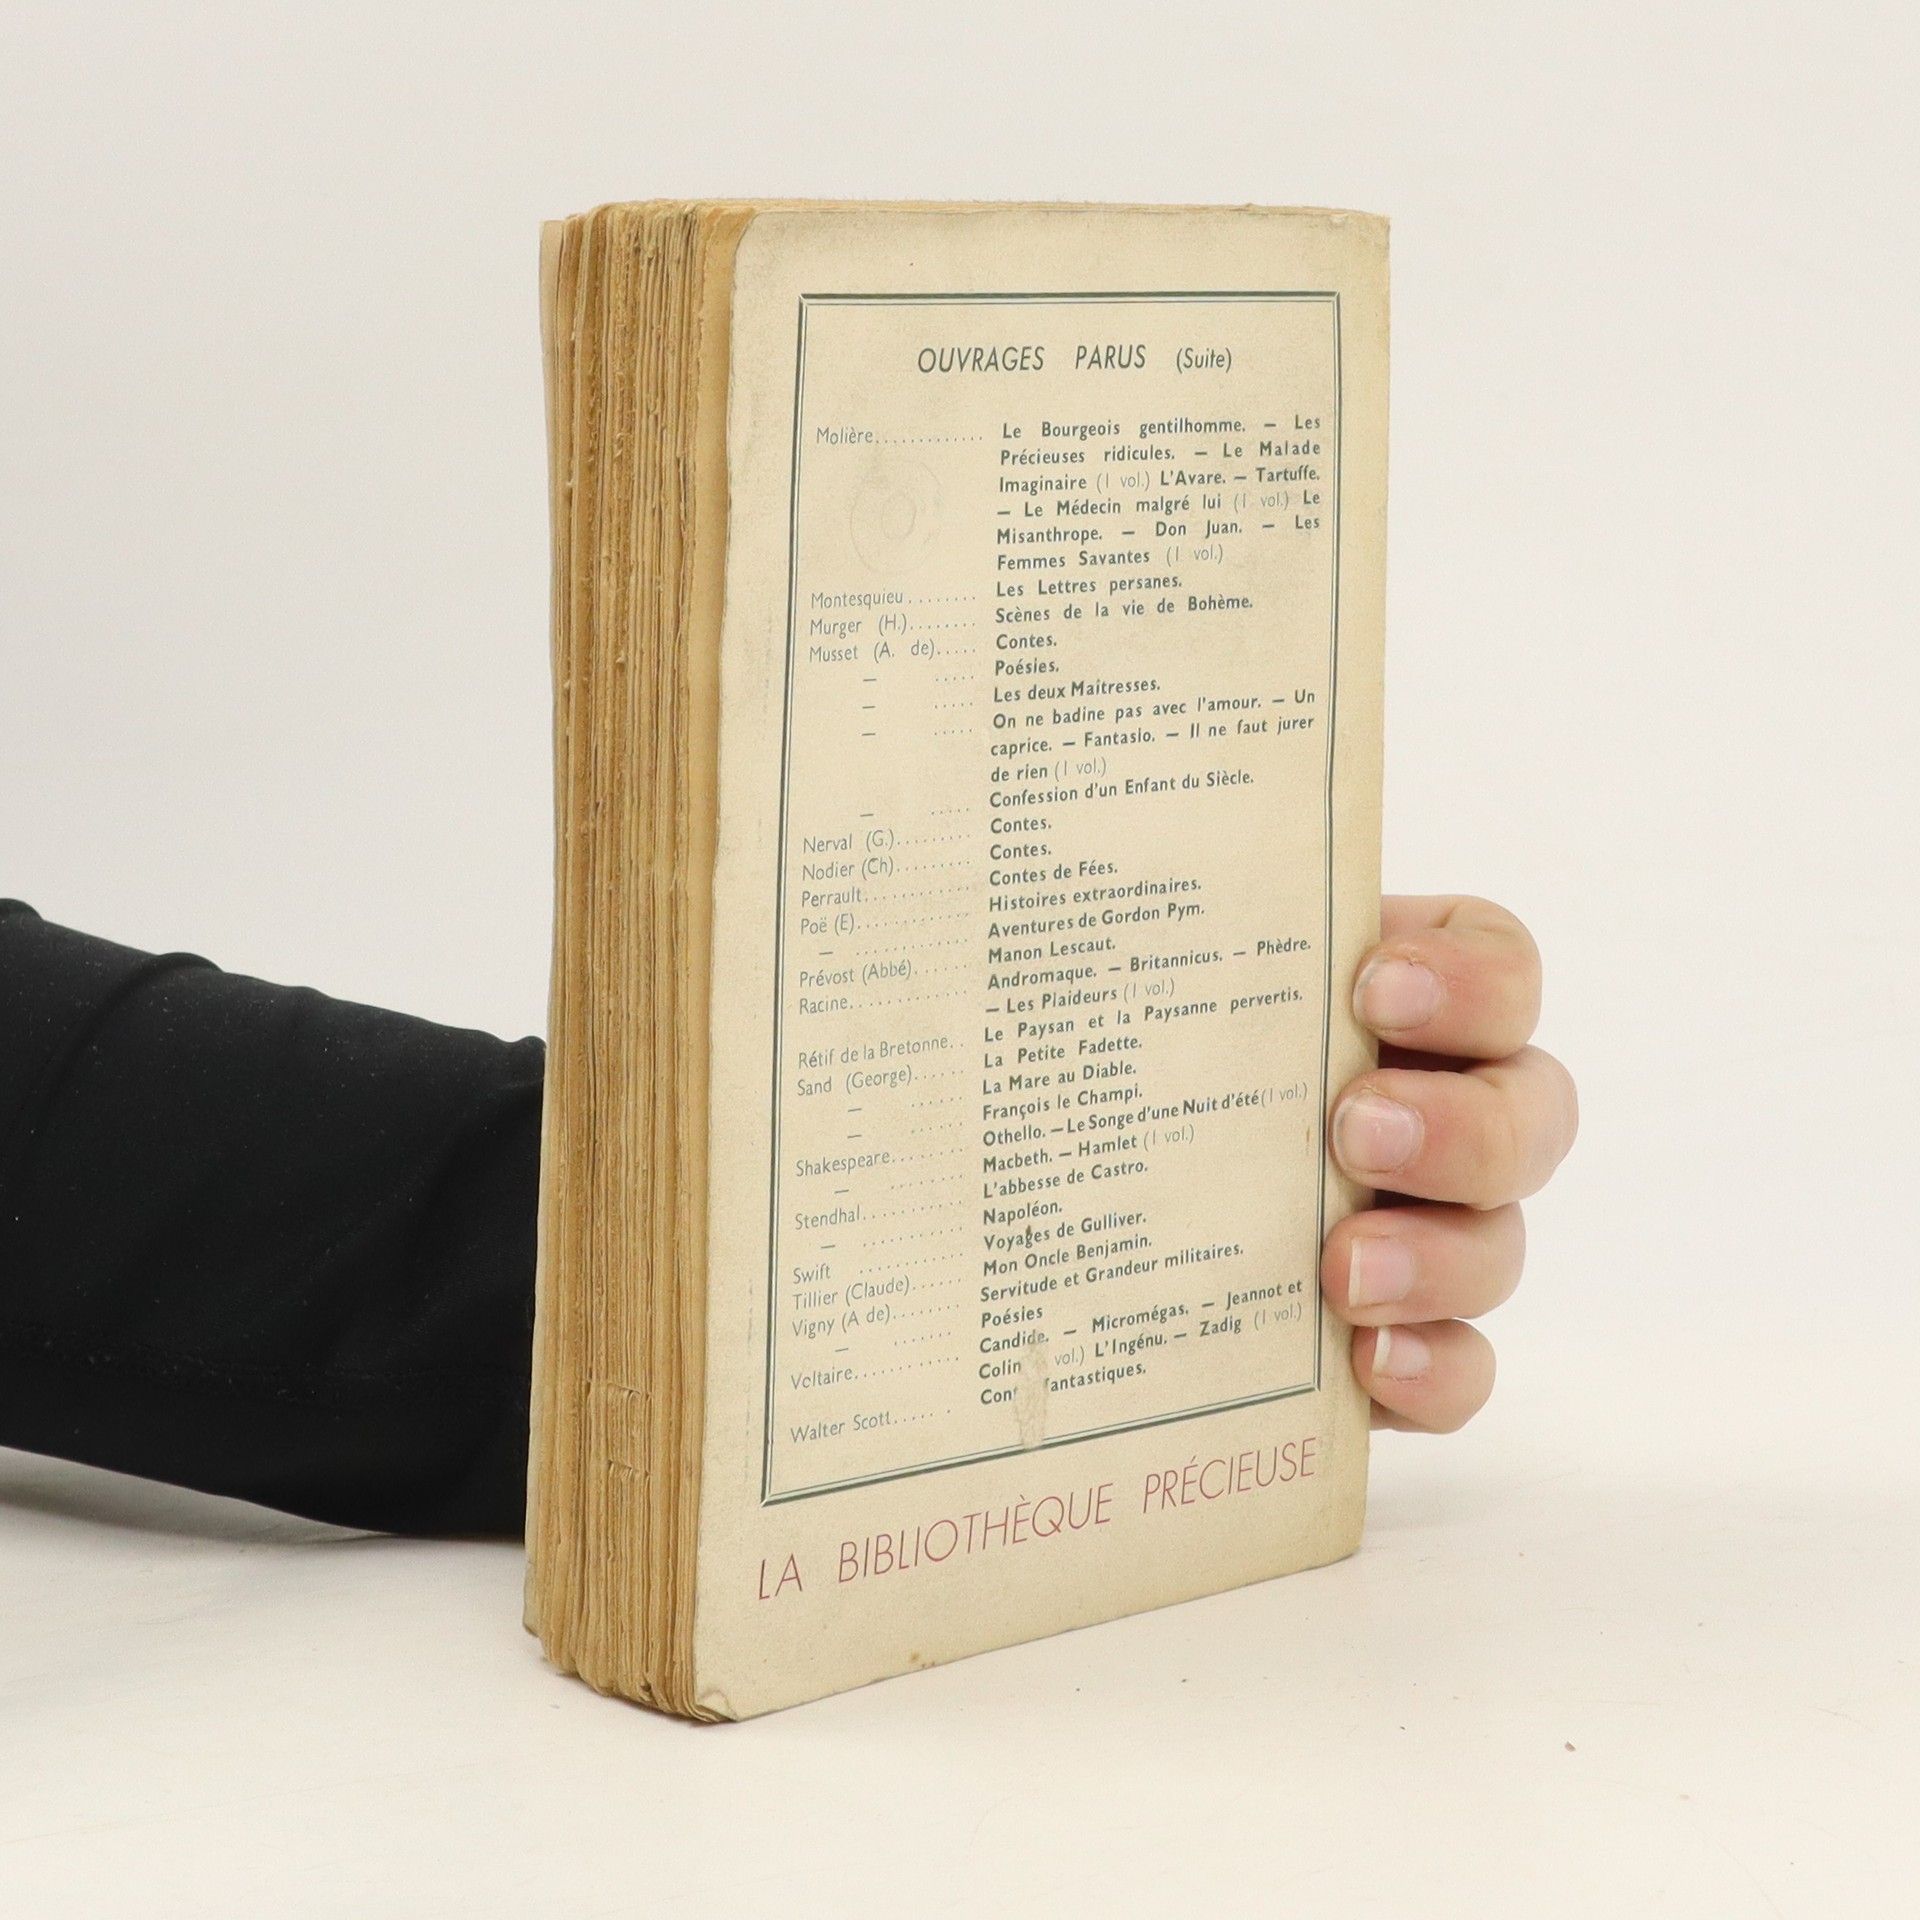 OUVRAGES PARUS (Suite)
Molière............. Le Bourgeois gentilhomme. — Les
Précieuses ridicules. — Le Malade
Imaginaire (1 vol.) L'Avare. — Tartuffe.
— Le Médecin malgré lui (1 vol.) Le
Misanthrope. — Don Juan. — Les
Femmes Savantes (1 vol.)
Montesquieu........ Les Lettres persanes.
Murger (H.)........ Scènes de la vie de Bohème.
Musset (A. de)..... Contes.
— ..... Poésies.
— ..... Les deux Maitresses.
— ..... On ne badine pas avec l'amour. — Un
caprice. — Fantasio. — Il ne faut jurer
de rien (1 vol.)
— ..... Confession d'un Enfant du Siècle.
Nerval (G.)........ Contes.
Nodier (Ch)........ Contes.
Perrault........... Contes de Fées.
Poë (E)............ Histoires extraordinaires.
— ............ Aventures de Gordon Pym.
Prévost (Abbé)...... Manon Lescaut.
Racine............. Andromaque. — Britannicus. — Phèdre.
— Les Plaideurs (1 vol.)
Rétif de la Bretonne.. Le Paysan et la Paysanne pervertis.
Sand (George)...... La Petite Fadette.
— ...... La Mare au Diable.
— ...... François le Champi.
Shakespeare........ Othello. — Le Songe d'une Nuit d'été (1 vol.)
— ........ Macbeth. — Hamlet (1 vol.)
Stendhal........... L'abbesse de Castro.
— ........... Napoléon.
Swift ............ Voyages de Gulliver.
Tillier (Claude)...... Mon Oncle Benjamin.
Vigny (A de)........ Servitude et Grandeur militaires.
— ...... Poésies
Voltaire............ Candide. — Micromégas. — Jeannot et
Colin vol.) L'Ingénu. — Zadig (1 vol.)
Walter Scott...... Cont fantastiques.
LA BIBLIOTHÈQUE PRÉCIEUSE